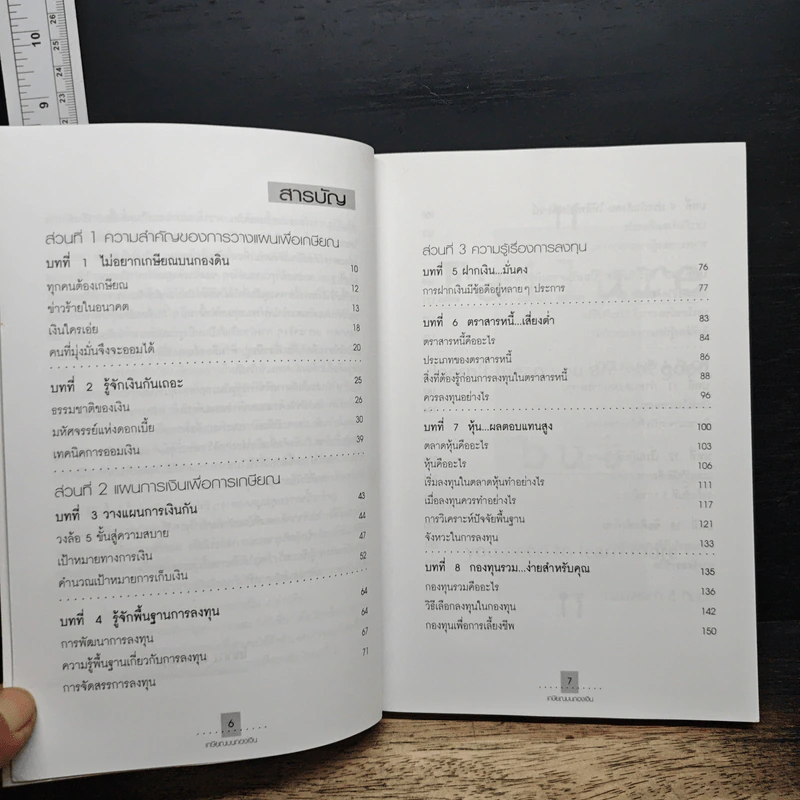 สารบัญ
ส่วนที่ 1 ความสำคัญของการวางแผนเพื่อเกษียณ
บทที่ 1 ไม่อยากเกษียณบนกองดิน 10
ทุกคนต้องเกษียณ 12
ข่าวร้ายในอนาคต 13
เงินใครเอ่ย 18
คนที่มุ่งมั่นจึงจะออมได้ 20
บทที่ 2 รู้จักเงินกันเถอะ 25
ธรรมชาติของเงิน 26
มหัศจรรย์แห่งดอกเบี้ย 30
เทคนิคการออมเงิน 39
ส่วนที่ 2 แผนการเงินเพื่อการเกษียณ
บทที่ 3 วางแผนการเงินกัน 43
วงล้อ 5 ขั้นสู่ความสบาย 44
เป้าหมายทางการเงิน 47
คำนวณเป้าหมายการเก็บเงิน 52
บทที่ 4 รู้จักพื้นฐานการลงทุน 64
การพัฒนาการลงทุน 64
ความรู้พื้นฐานเกี่ยวกับการลงทุน 67
การจัดสรรการลงทุน 71
6
เกษียณบนกองเงิน
ส่วนที่ 3 ความรู้เรื่องการลงทุน
บทที่ 5 ฝากเงิน...มั่นคง 76
การฝากเงินมีข้อดีอยู่หลายๆ ประการ 77
บทที่ 6 ตราสารหนี้...เสี่ยงต่ำ 83
ตราสารหนี้คืออะไร 84
ประเภทของตราสารหนี้ 86
สิ่งที่ต้องรู้ก่อนการลงทุนในตราสารหนี้ 88
ควรลงทุนอย่างไร 96
บทที่ 7 หุ้น...ผลตอบแทนสูง 100
ตลาดหุ้นคืออะไร 103
หุ้นคืออะไร 106
เริ่มลงทุนในตลาดหุ้นทำอย่างไร 111
เมื่อลงทุนควรทำอย่างไร 117
การวิเคราะห์ปัจจัยพื้นฐาน 121
จังหวะในการลงทุน 133
บทที่ 8 กองทุนรวม...ง่ายสำหรับคุณ 135
กองทุนรวมคืออะไร 136
วิธีเลือกลงทุนในกองทุน 142
กองทุนเพื่อการเลี้ยงชีพ 150
7
เกษียณบนกองเงิน
10
9
26
25
24
23
22